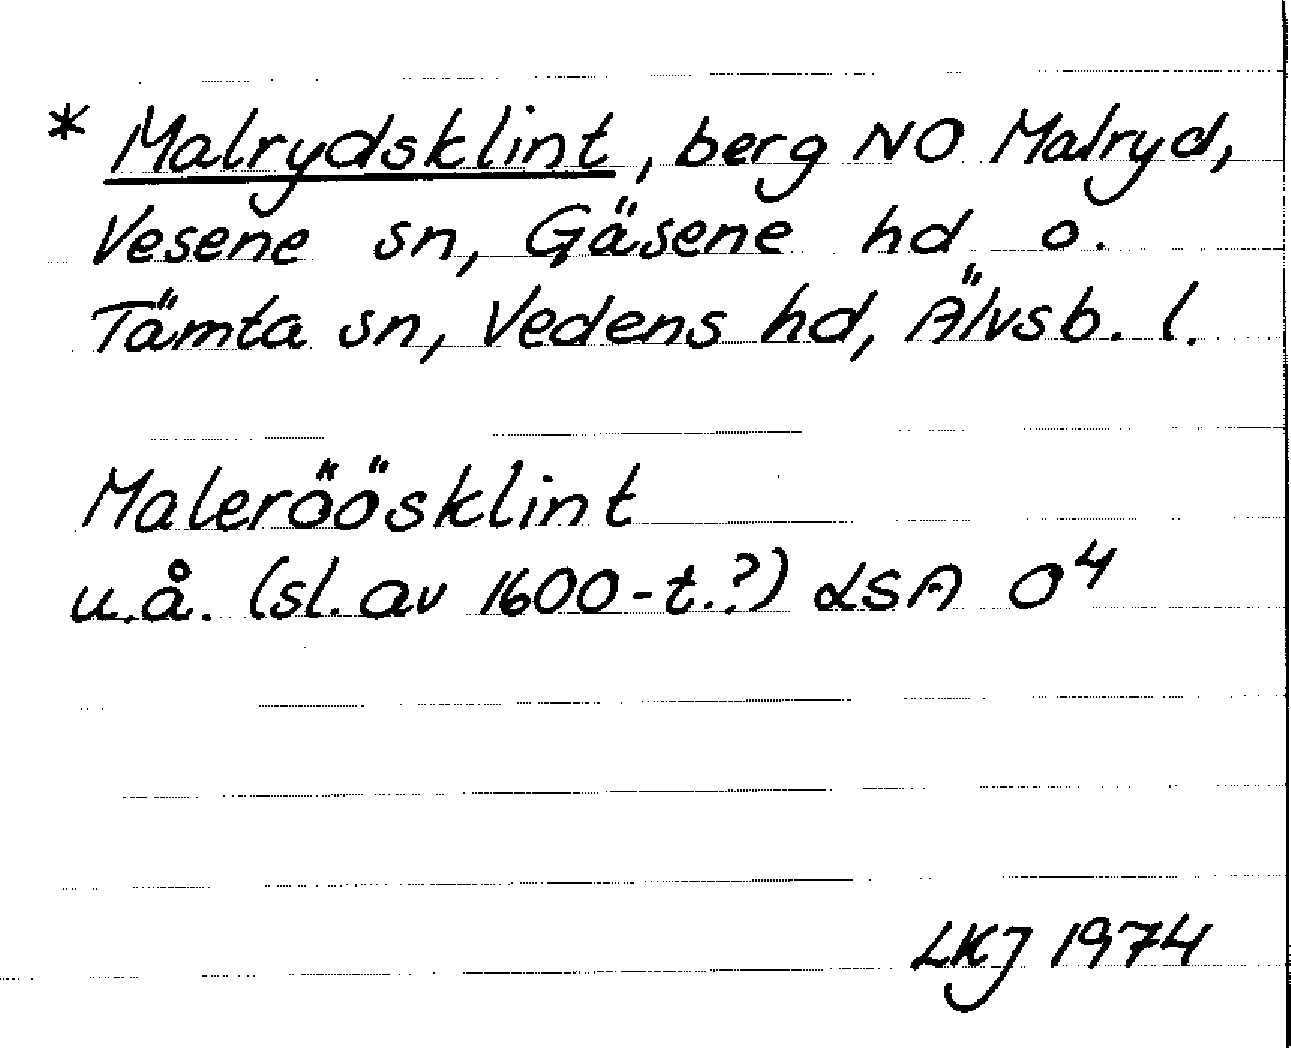 * Malrydsklint, berg NO Malryd,
Vesene sn, Gäsene hd o.
Tämta sn, Vedens hd, Älvsb. l.
Maleröösklint
u.å. (sl. av 1600-t.?) LSA O4
LKJ 1974